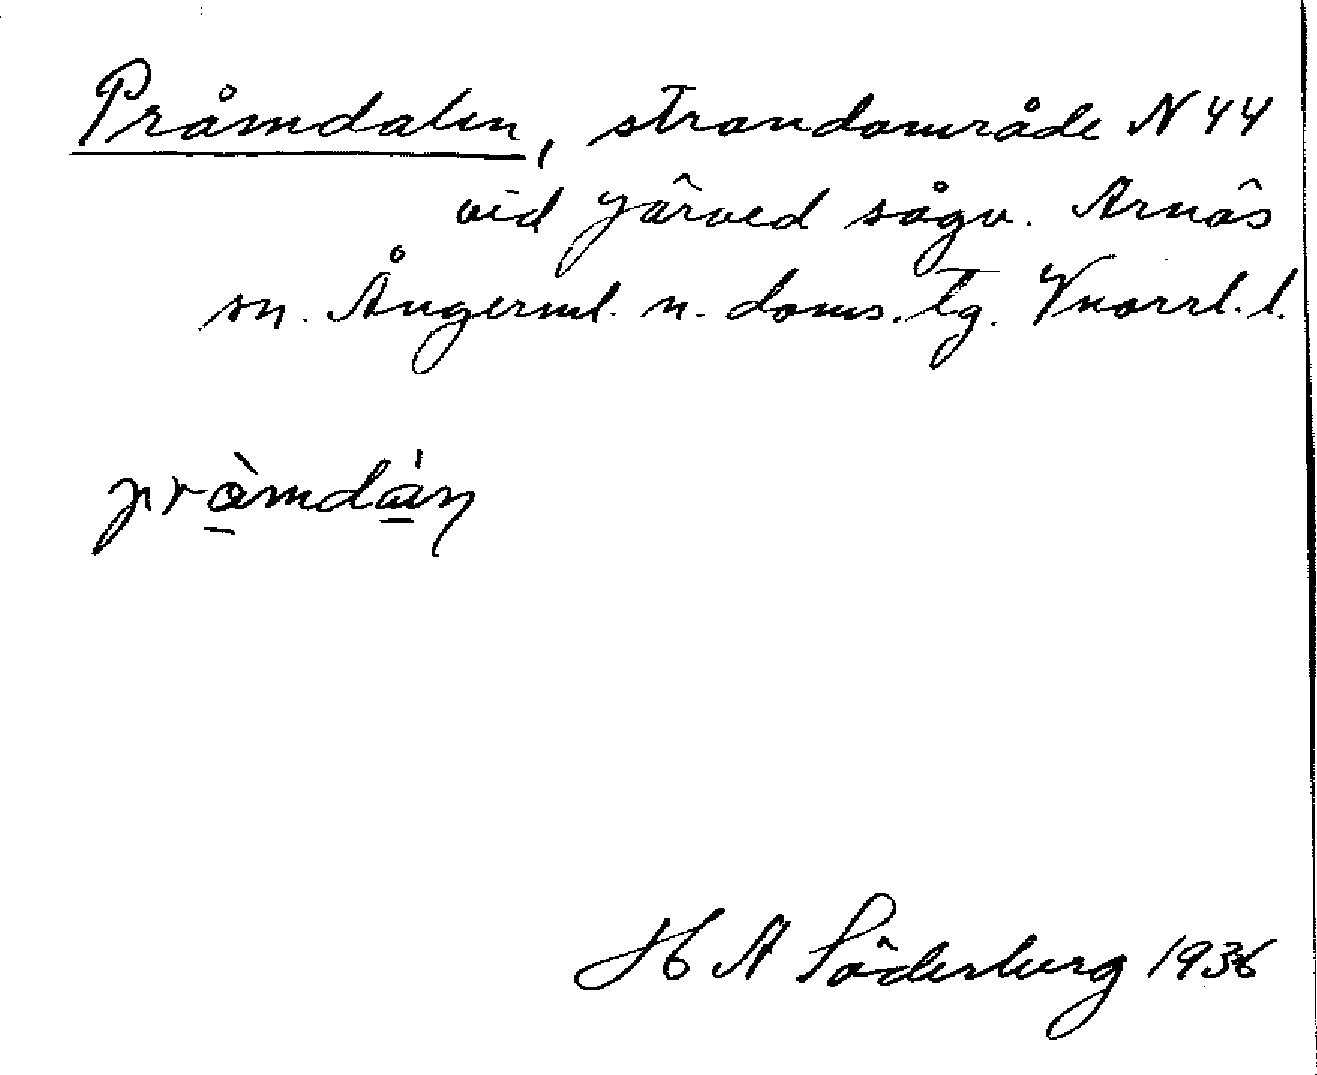 Pråmdalen, strandområde N 44
vid Järved sågv. Arnäs
sn. Ångerml. n. doms. lg. Vnorrl. l.
pràmdán
H A Söderberg 1936